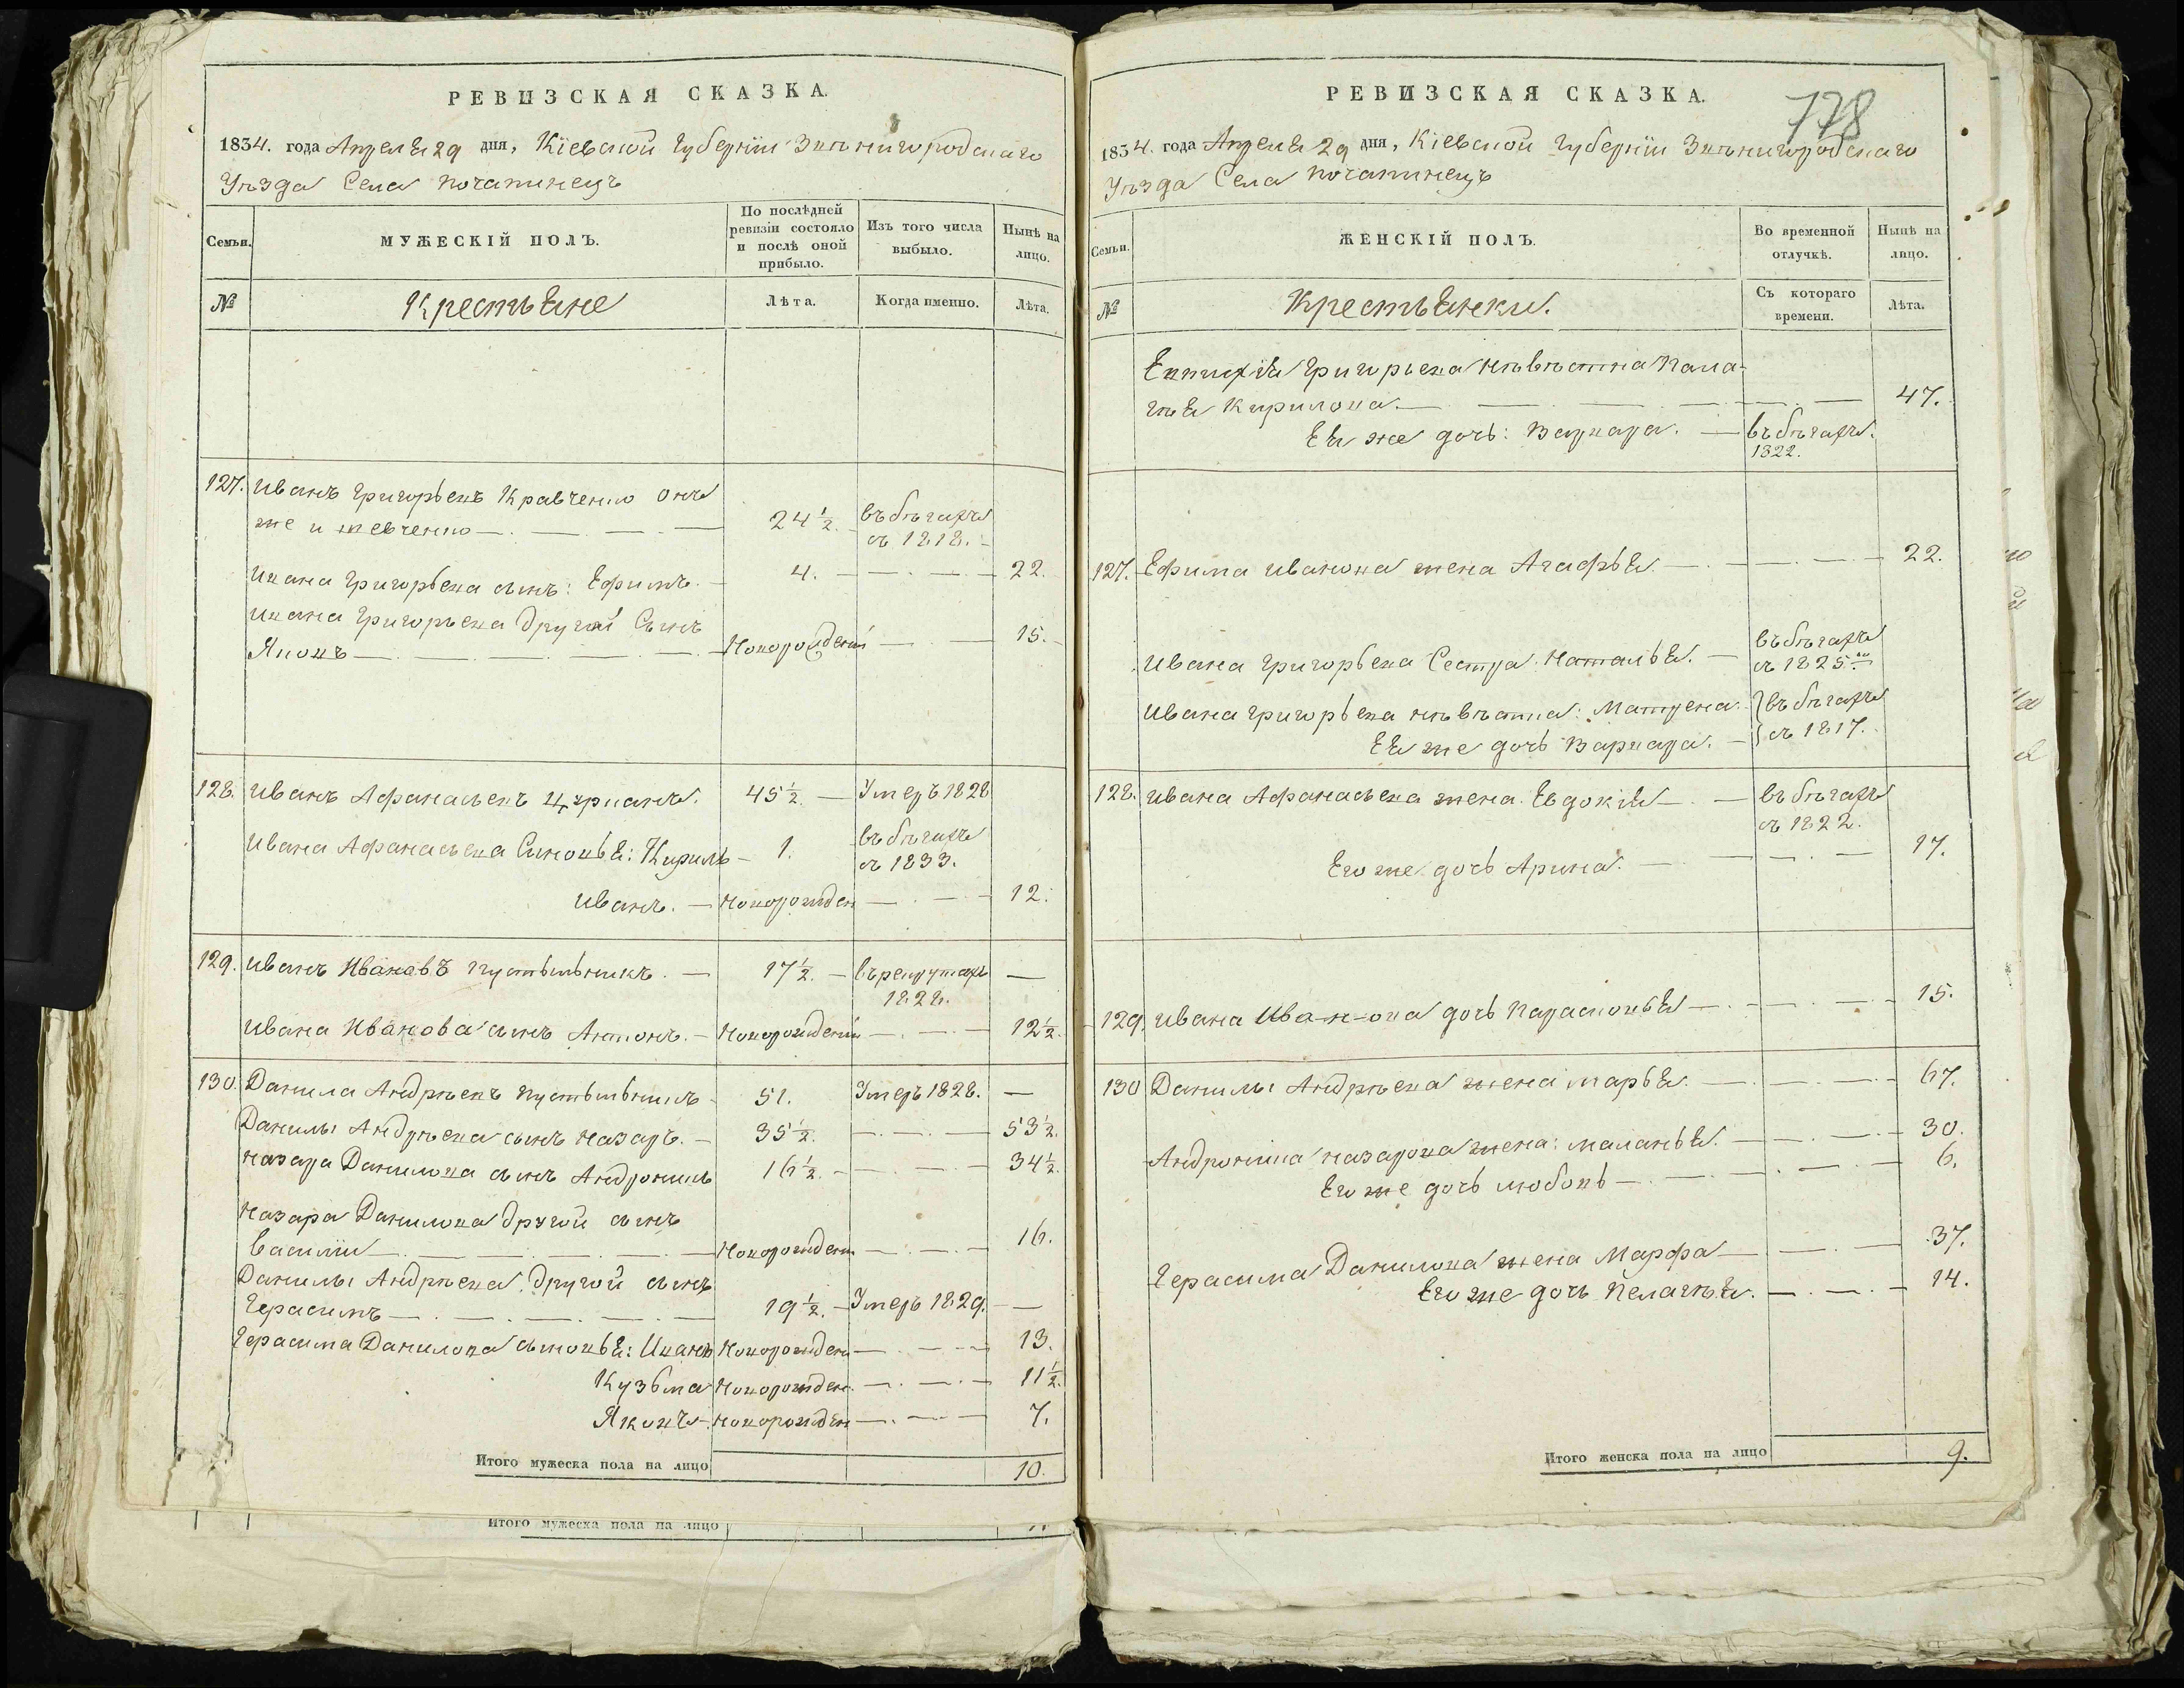 РЕВИЗСКАЯ СКАЗКА.
1834. года Апреля 29 дня, Кіевской Губерніи Звѣнигородскаго
Уѣзда Села Почапинецъ
Семьи.
МУЖЕСКІЙ ПОЛЪ.
По послѣдней
ревизіи состояло
и послѣ оной
прибыло.
Изъ того числа
выбыло.
Нынѣ на
лицо.
№
Крестьяне
Лѣта.
Когда именно.
Лѣта.
127. Иванъ Григорьевъ Кравченко онъ
же и Шевченко — 24 1/2. въ бѣгахъ
съ 1818.
Ивана Григорьева сынъ: Ефимъ. 4. — 22.
Ивана Григорьева другой Сынъ
Яковъ — Новорожденій — 15.
128. Иванъ Афанасьевъ Цурканъ. 45 1/2. — Умеръ 1828
Ивана Афанасьева Сыновья: Кирилъ — 1. въ бѣгахъ
съ 1833.
Иванъ. — Новорожден — 12.
129. Иванъ Ивановъ Пустыльникъ. — 17 1/2. — въ рекрутахъ —
1828.
Ивана Иванова сынъ Антонъ. — Новорожденій — 12 1/2.
130. Данила Андрѣевъ Пустыльникъ 51. Умеръ 1828. —
Данилы Андрѣева сынъ Назаръ. — 35 1/2. — 53 1/2.
Назара Данилова сынъ Андроникъ 16 1/2. — 34 1/2.
Назара Данилова другой сынъ
Василій — Новорожден — 16.
Данилы Андрѣева другой сынъ
Герасимъ — 19 1/2. — Умеръ 1829. —
Герасима Данилова сыновья: Иванъ Новорожден — 13.
Кузьма Новорожден. — 11 1/2.
Яковъ — Новорожден — 7.
Итого мужеска пола на лицо 10.
Итого мужеска пола на лицо
РЕВИЗСКАЯ СКАЗКА.
778
1834. года Апреля 29 дня, Кіевской Губерніи Звѣнигородскаго
Уѣзда Села Почапинецъ
Семьи.
ЖЕНСКІЙ ПОЛЪ.
Во временной
отлучкѣ.
Нынѣ на
лицо.
№
Крестьянки.
Съ котораго
времени.
Лѣта.
Григорьева невѣстка Пала-
гѣя Кирилова. — 47.
Ея же дочь: Варвара. — въ бѣгахъ.
1822.
127. Ефима Иванова жена Агафья. — 22.
Ивана Григорьева Сестра Наталья. — въ бѣгахъ
съ 1825го
Ивана Григорьева невѣстка: Матрена. въ бѣгахъ
Ея же дочь Варвара. — съ 1817.
128. Ивана Афанасьева жена Евдокія — въ бѣгахъ
съ 1822.
Его же дочь Арина. — 17.
129. Ивана Иванова дочь Парасковья — 15.
130 Данилы Андрѣева жена Марья. — 67.
Андроника Назарова жена: Маланья. — 30.
Его же дочь Любовь — 6.
Герасима Данилова жена Марфа — 37.
Его же дочь Пелагѣя. — 14.
Итого женска пола на лицо 9.